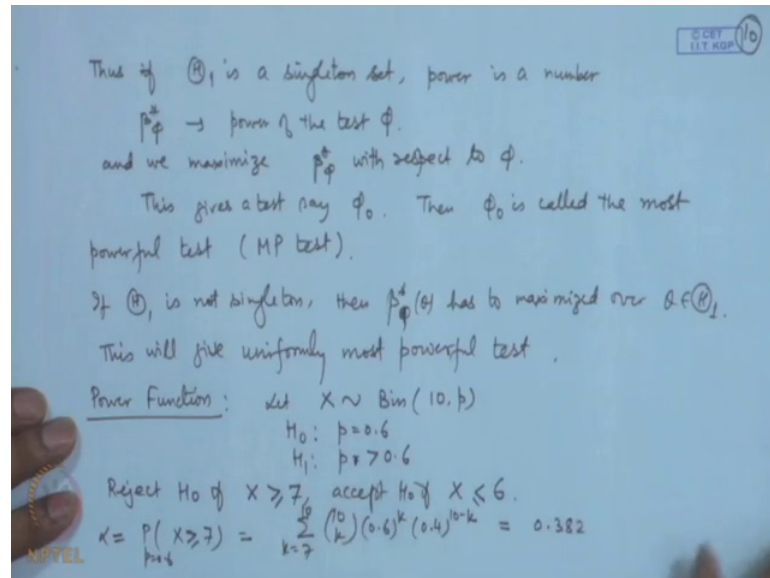 © CET
IIT KGP
110
Thus if Ⓗ₁ is a singleton set, power is a number
β*_φ → power of the test φ.
and we maximize β*_φ with respect to φ.
This gives a test say φ₀. Then φ₀ is called the most
powerful test (MP test).
If Ⓗ₁ is not singleton, then β*_φ(θ) has to maximized over θ∈Ⓗ₁.
This will give uniformly most powerful test.
Power Function: Let X ~ Bin(10, p)
H₀: p=0.6
H₁: p >0.6
Reject H₀ if X ≥ 7, accept H₀ if X ≤ 6.
α = P_{p=0.6}(X ≥ 7) = ∑_{k=7}^{10} (10 k) (0.6)^k (0.4)^{10-k} = 0.382
NPTEL